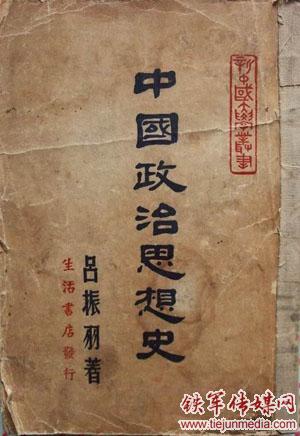 新中國大學叢書
中國政治思想史
呂振羽著
生活書店發行
铁军传媒网
www.tiejunmedia.com